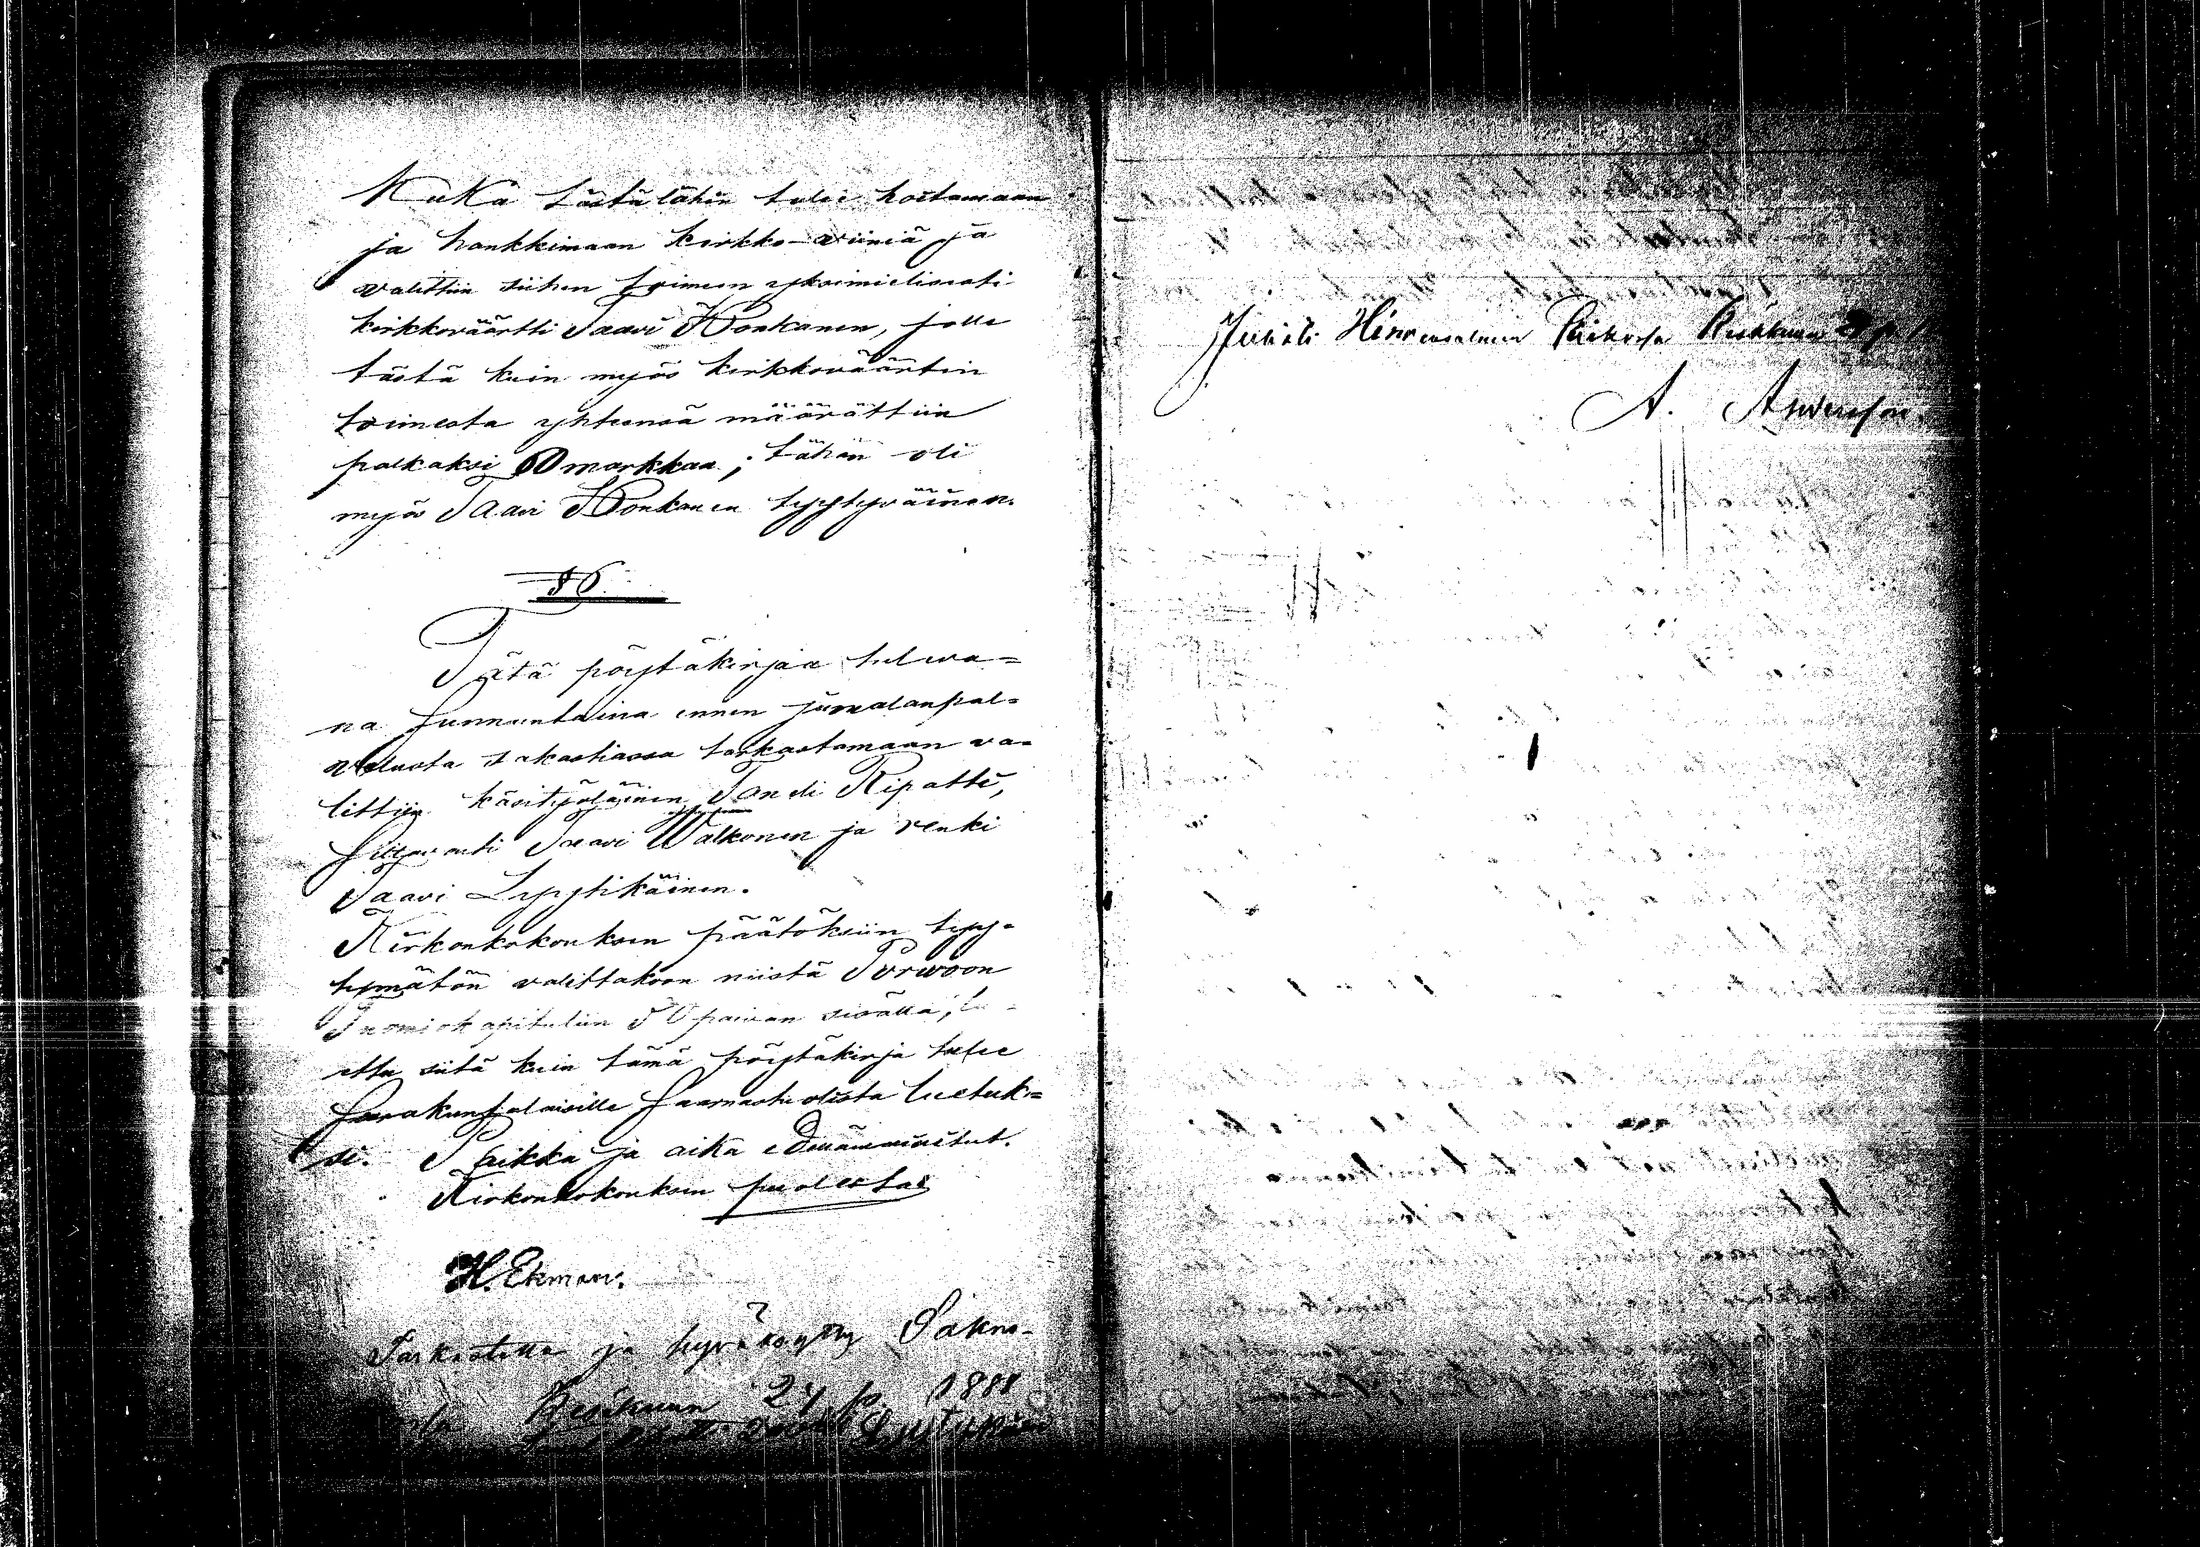 Kuka tästä lähin tulee hoitamaan
ja hankkimaan kirkko-viiniä ja
valittiin siihen toimeen yksimielisesti
kirkkoväärtti Taavi Honkanen, jolle
tästä kuin myös kirkkoväärtin
toimesta yhteensä määrättiin
palkaksi 60 markkaa; tähän oli
myös Taavi Honkanen tyytyväinen.
§ 6.
Tätä pöytäkirjaa tulewa=
na sunnuntaina ennen jumalanpal=
velusta sakastiassa tarkastamaan va=
littiin käsityöläinen Taneli Ripatti,
Taavi Walkonen ja renki
Taavi Lyytikäinen.
Kirkonkokouksen päätöksiin tyy=
tymätön valittakoon niistä Porwoon
Tuomiokapituliin 30 päivän sisällä, lu=
ettu siitä kuin tämä pöytäkirja tulee
seurakuntalaisille saarnastuolista luetuk=
si. Paikka ja aika edellämainitut.
Kirkonkokouksen puolesta:
H. Ekman.
Tarkastettu ja hyväksytty Sakas-
Kesäkuun 24 p. 1888
Julisti Hirvensalmen Kirkossa Kesäkuun
A. Andersson.